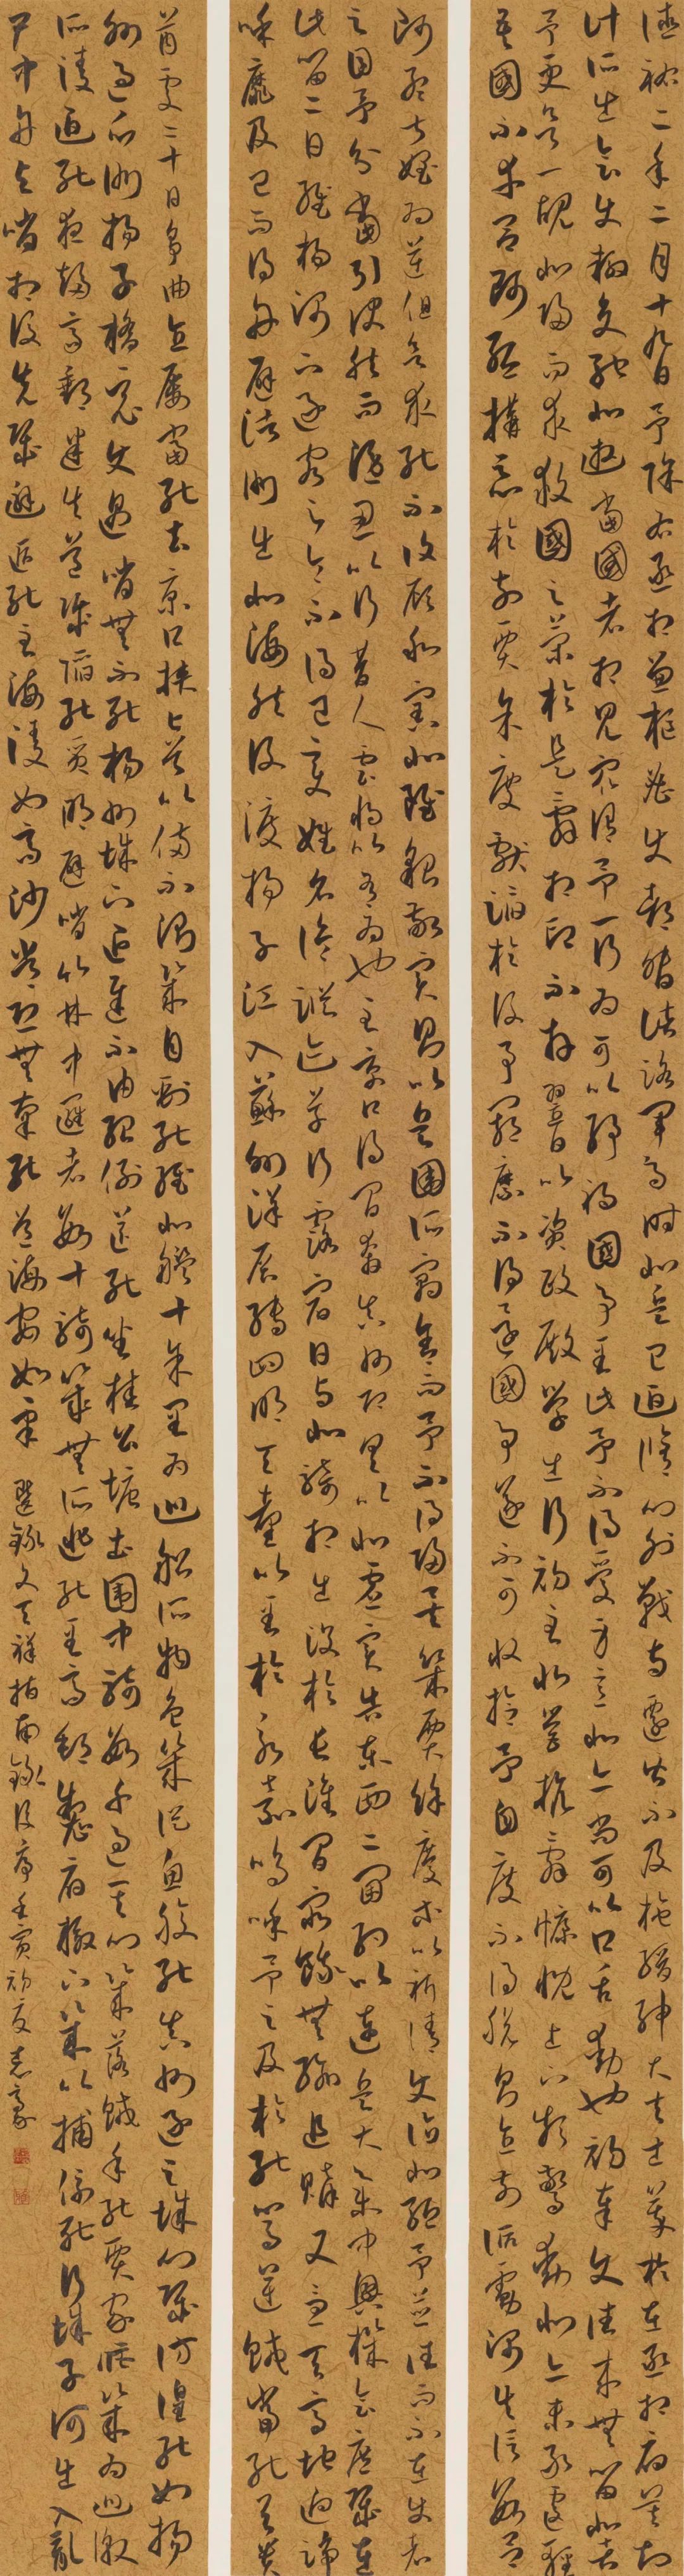 德祐二年二月十九日予除右丞相兼樞密使都督諸路軍馬時北兵已迫修門外戰守遷皆不及施縉紳大夫士萃於左丞相府莫知
計所出會使轍交馳北邀當國者相見衆謂予一行為可以紓禍國事至此予不得愛身意北亦尚可以口舌動也初奉使往來無留北者
予更欲一覘北歸而求救國之策於是辭相印不拜翌日以資政殿學士行初至北營抗辭慷慨上下頗驚動北亦未敢遽輕
吾國不幸呂師孟構惡於前賈餘慶獻諂於後予羈縻不得還國事遂不可收拾予自度不得脫則直前詬虜帥失信數呂
師孟叔姪為逆但欲求死不復顧利害北雖貌敬實則以兵圍所寓舍而予不得歸矣賈餘慶等以祈請使詣北驅予並往而不在使者
之目予分當引決然而隱忍以行昔人云將以有為也至京口得間奔真州即具以北虛實告東西二閫約以連兵大舉中興機會庶幾在
此留二日維揚帥下逐客之令不得已變姓名詭蹤跡草行露宿日與北騎相出沒於長淮間窮餓無聊追購又急天高地迥號
呼靡及已而得舟避渚洲出北海然後渡揚子江入蘇州洋展轉四明天臺以至於永嘉嗚呼予之及於死罵逆賊當死與貴
酋處二十日爭曲直屢當死去京口挾匕首以備不測幾自剄死經北艦十餘里為巡船所物色幾從魚腹死真州逐之城門幾彷徨死如揚
州過瓜洲揚子橋竟使遇哨無不死揚州城下進退不由殆例送死坐桂公塘土圍中騎數千過其門幾落賊手死賈家莊幾為巡徼
所陵迫死夜趨高郵迷失道幾陷死質明避哨竹林中邏者數十騎幾無所逃死至高郵制府檄下幾以捕係死行城子河出入亂
尸中舟與哨相後先幾邂逅死至海陵如高沙常恐無辜死道海安如皋 選錄文天祥指南錄後序壬寅初夏志豪